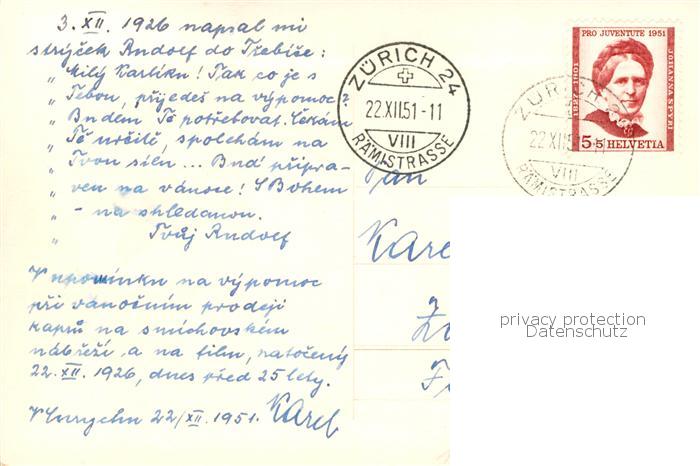 3. XII. 1926 napsal mi
strýček Rudolf do Třebíče:
„Milý Karlíku! Tak co je s
„Tebou, přijedeš na výpomoc?
„Budem Tě potřebovat. Čekám
„Tě určitě, spoléhám na
„Tvou sílu... Buď připra-
„ven na vánoce! S Bohem
„- na shledanou.
„ Tvůj Rudolf
Vzpomínku na výpomoc
při vánočním prodeji
kaprů na smíchovském
nábřeží a na film, natočený
22. XII. 1926, dnes před 25 lety.
V Curychu 22/XII. 1951. Karel
ZÜRICH 24
22.XII.51-11
VIII
RÄMISTRASSE
PRO JUVENTUTE 1951
JOHANNA SPYRI
1827-1901
5+5 HELVETIA
ZÜRICH
22.XII.51
VIII
RÄMISTRASSE
Pan
Karel
privacy protection
Datenschutz